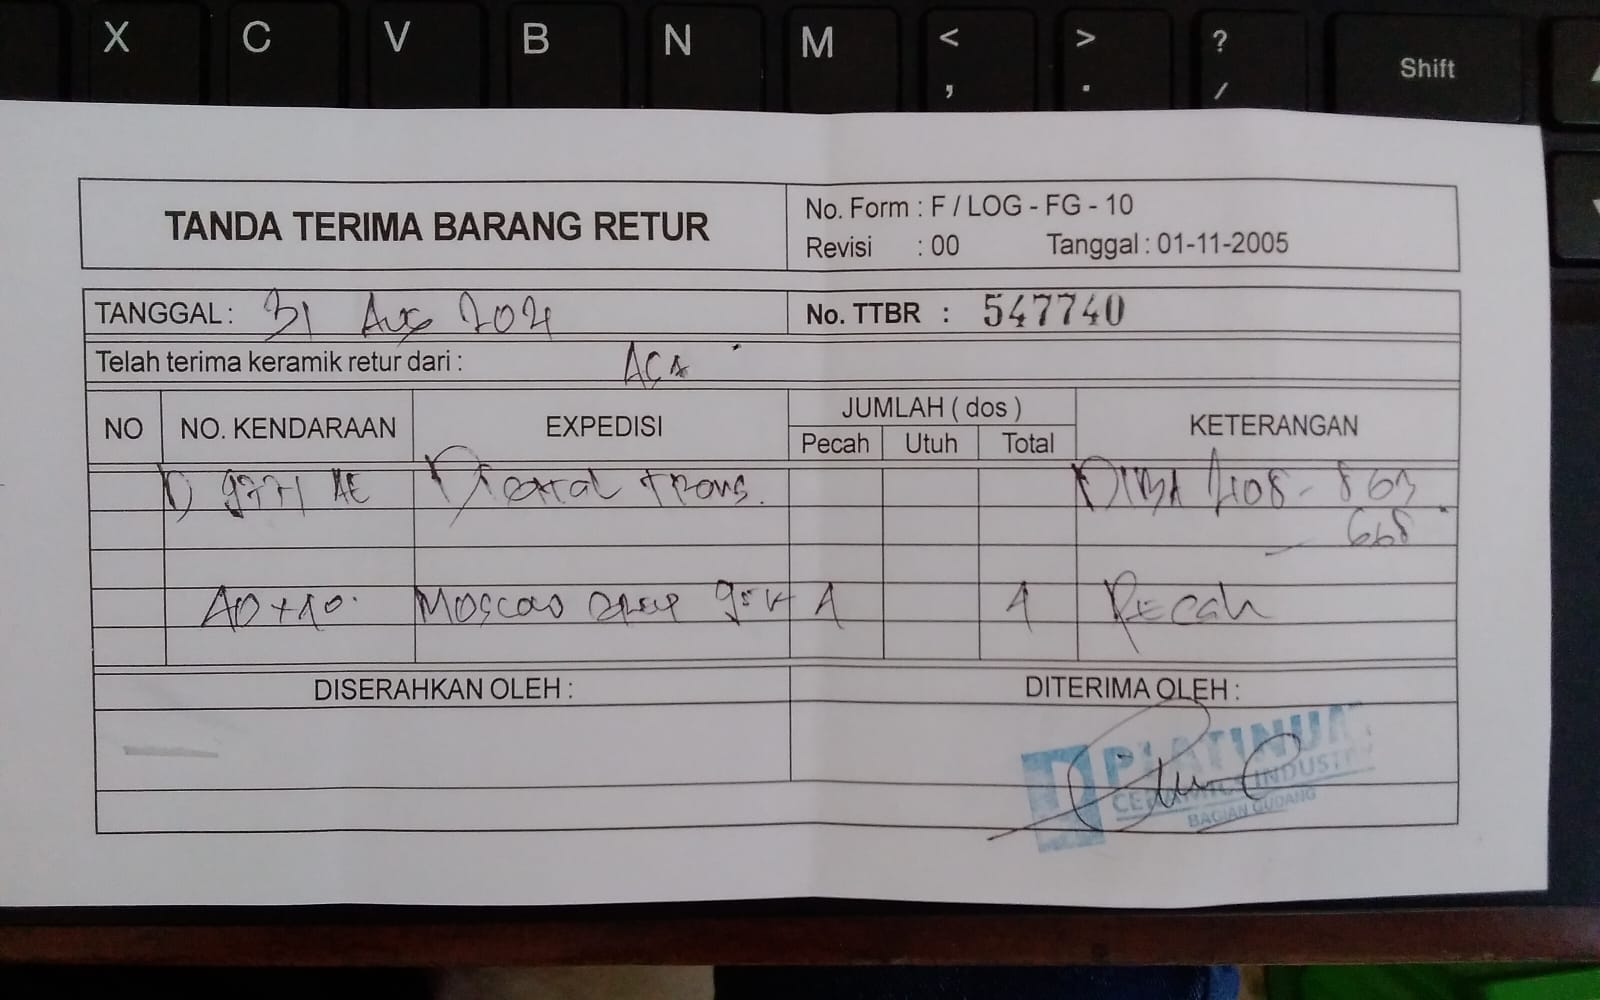 X C V B N M < , > . ? / Shift
TANDA TERIMA BARANG RETUR
No. Form : F / LOG - FG - 10
Revisi : 00 Tanggal : 01-11-2005
TANGGAL : 31 Aug 2021
No. TTBR : 547740
Telah terima keramik retur dari : ACA
NO NO. KENDARAAN EXPEDISI JUMLAH ( dos ) KETERANGAN
Pecah Utuh Total
D 9771 AE trans.
668
40+40. Moscow 1 1 Pecah
DISERAHKAN OLEH :
DITERIMA OLEH :
PLATINUM
CERAMICS INDUSTRY
BAGIAN GUDANG